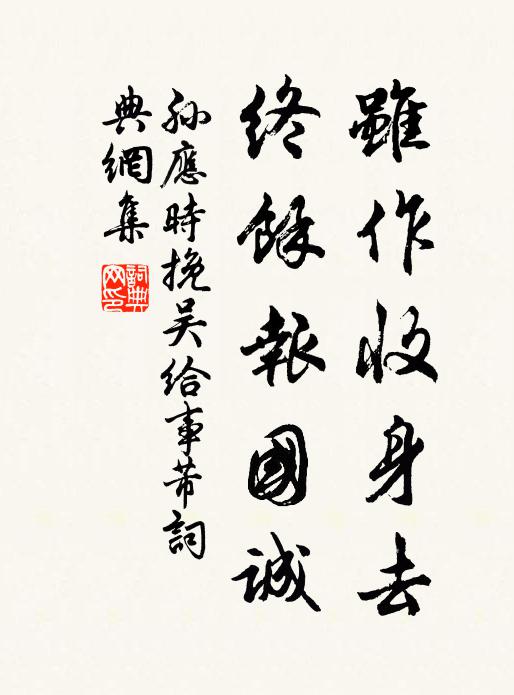 雖作收身去
終餘報國誠
孫應時挽吳給事芾詞
典網集
詞典网印